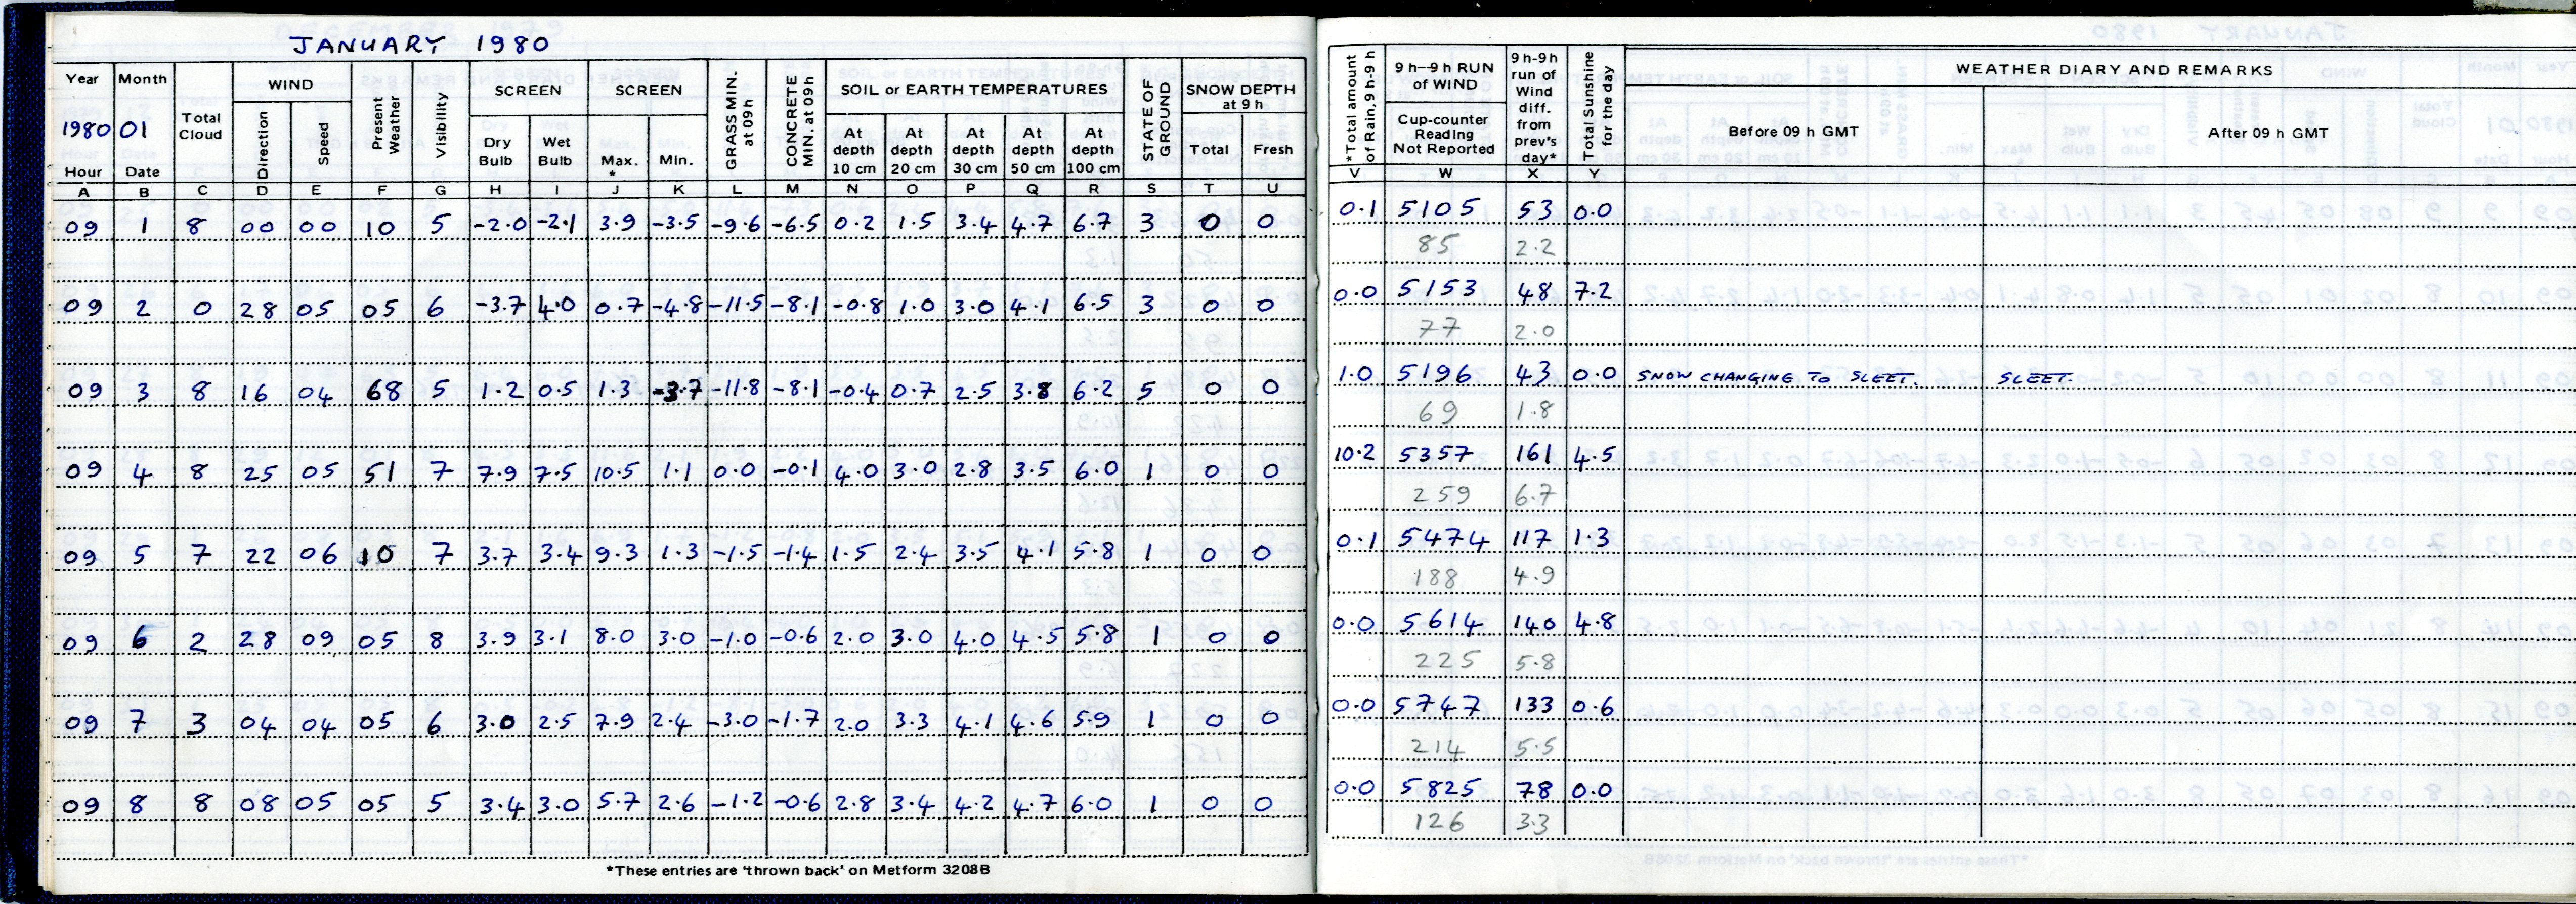 JANUARY 1980
Year Month Total Cloud WIND Present Weather Visibility SCREEN SCREEN GRASS MIN. at 09h CONCRETE MIN. at 09h SOIL or EARTH TEMPERATURES STATE OF GROUND SNOW DEPTH at 9 h *Total amount of Rain, 9h-9h 9 h–9 h RUN of WIND 9 h-9h run of Wind diff. from prev's day* Total Sunshine for the day WEATHER DIARY AND REMARKS
1980 01 Direction Speed Dry Bulb Wet Bulb Max. * Min. At depth 10 cm At depth 20 cm At depth 30 cm At depth 50 cm At depth 100 cm Total Fresh Cup-counter Reading Not Reported Before 09 h GMT After 09 h GMT
Hour Date
A B C D E F G H I J K L M N O P Q R S T U V W X Y
09 1 8 00 00 10 5 -2.0 -2.1 3.9 -3.5 -9.6 -6.5 0.2 1.5 3.4 4.7 6.7 3 0 0 0.1 5105 53 0.0
85 2.2
09 2 0 28 05 05 6 -3.7 4.0 0.7 -4.8 -11.5 -8.1 -0.8 1.0 3.0 4.1 6.5 3 0 0 0.0 5153 48 7.2
77 2.0
09 3 8 16 04 68 5 1.2 0.5 1.3 -3.7 -11.8 -8.1 -0.4 0.7 2.5 3.8 6.2 5 0 0 1.0 5196 43 0.0 SNOW CHANGING TO SLEET. SLEET.
69 1.8
09 4 8 25 05 51 7 7.9 7.5 10.5 1.1 0.0 -0.1 4.0 3.0 2.8 3.5 6.0 1 0 0 10.2 5357 161 4.5
259 6.7
09 5 7 22 06 10 7 3.7 3.4 9.3 1.3 -1.5 -1.4 1.5 2.4 3.5 4.1 5.8 1 0 0 0.1 5474 117 1.3
188 4.9
09 6 2 28 09 05 8 3.9 3.1 8.0 3.0 -1.0 -0.6 2.0 3.0 4.0 4.5 5.8 1 0 0 0.0 5614 140 4.8
225 5.8
09 7 3 04 04 05 6 3.0 2.5 7.9 2.4 -3.0 -1.7 2.0 3.3 4.1 4.6 5.9 1 0 0 0.0 5747 133 0.6
214 5.5
09 8 8 08 05 05 5 3.4 3.0 5.7 2.6 -1.2 -0.6 2.8 3.4 4.2 4.7 6.0 1 0 0 0.0 5825 78 0.0
126 3.3
*These entries are 'thrown back' on Metform 3208B